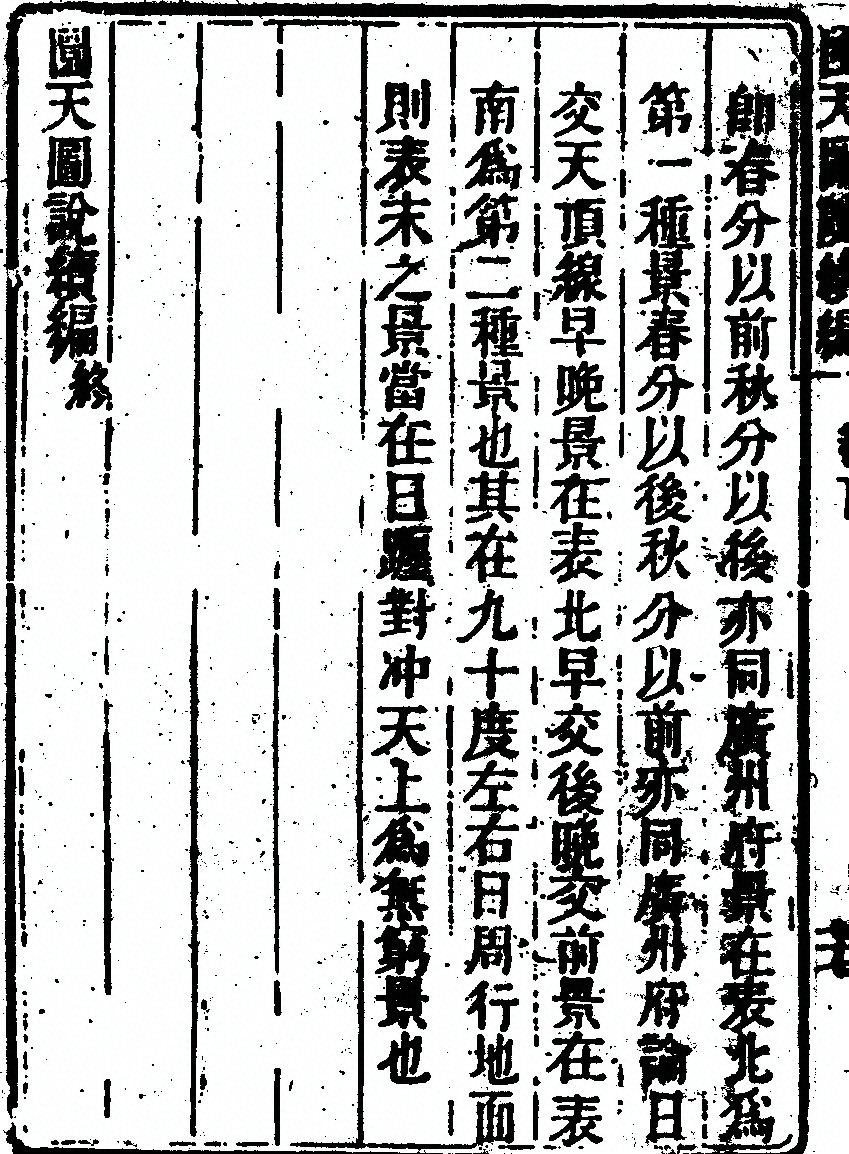 卽春分以前秋分以後亦同廣州府景在表北爲
第一種景春分以後秋分以前亦同廣州府論日
交天頂線早晩景在表北早交後晩交前景在表
南爲第二種景也其在九十度左右日周行地面
則表末之景當在日躔對冲天上爲無窮景也
圜天圖說續編終